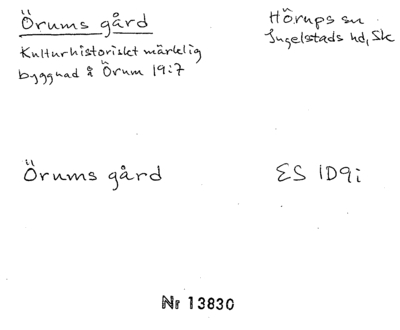 Örums gård
Hörups sn
Ingelstads hd, Sk
Kulturhistoriskt märklig
byggnad å Örum 19:7
Örums gård
ES 1D9i
Nr 13830